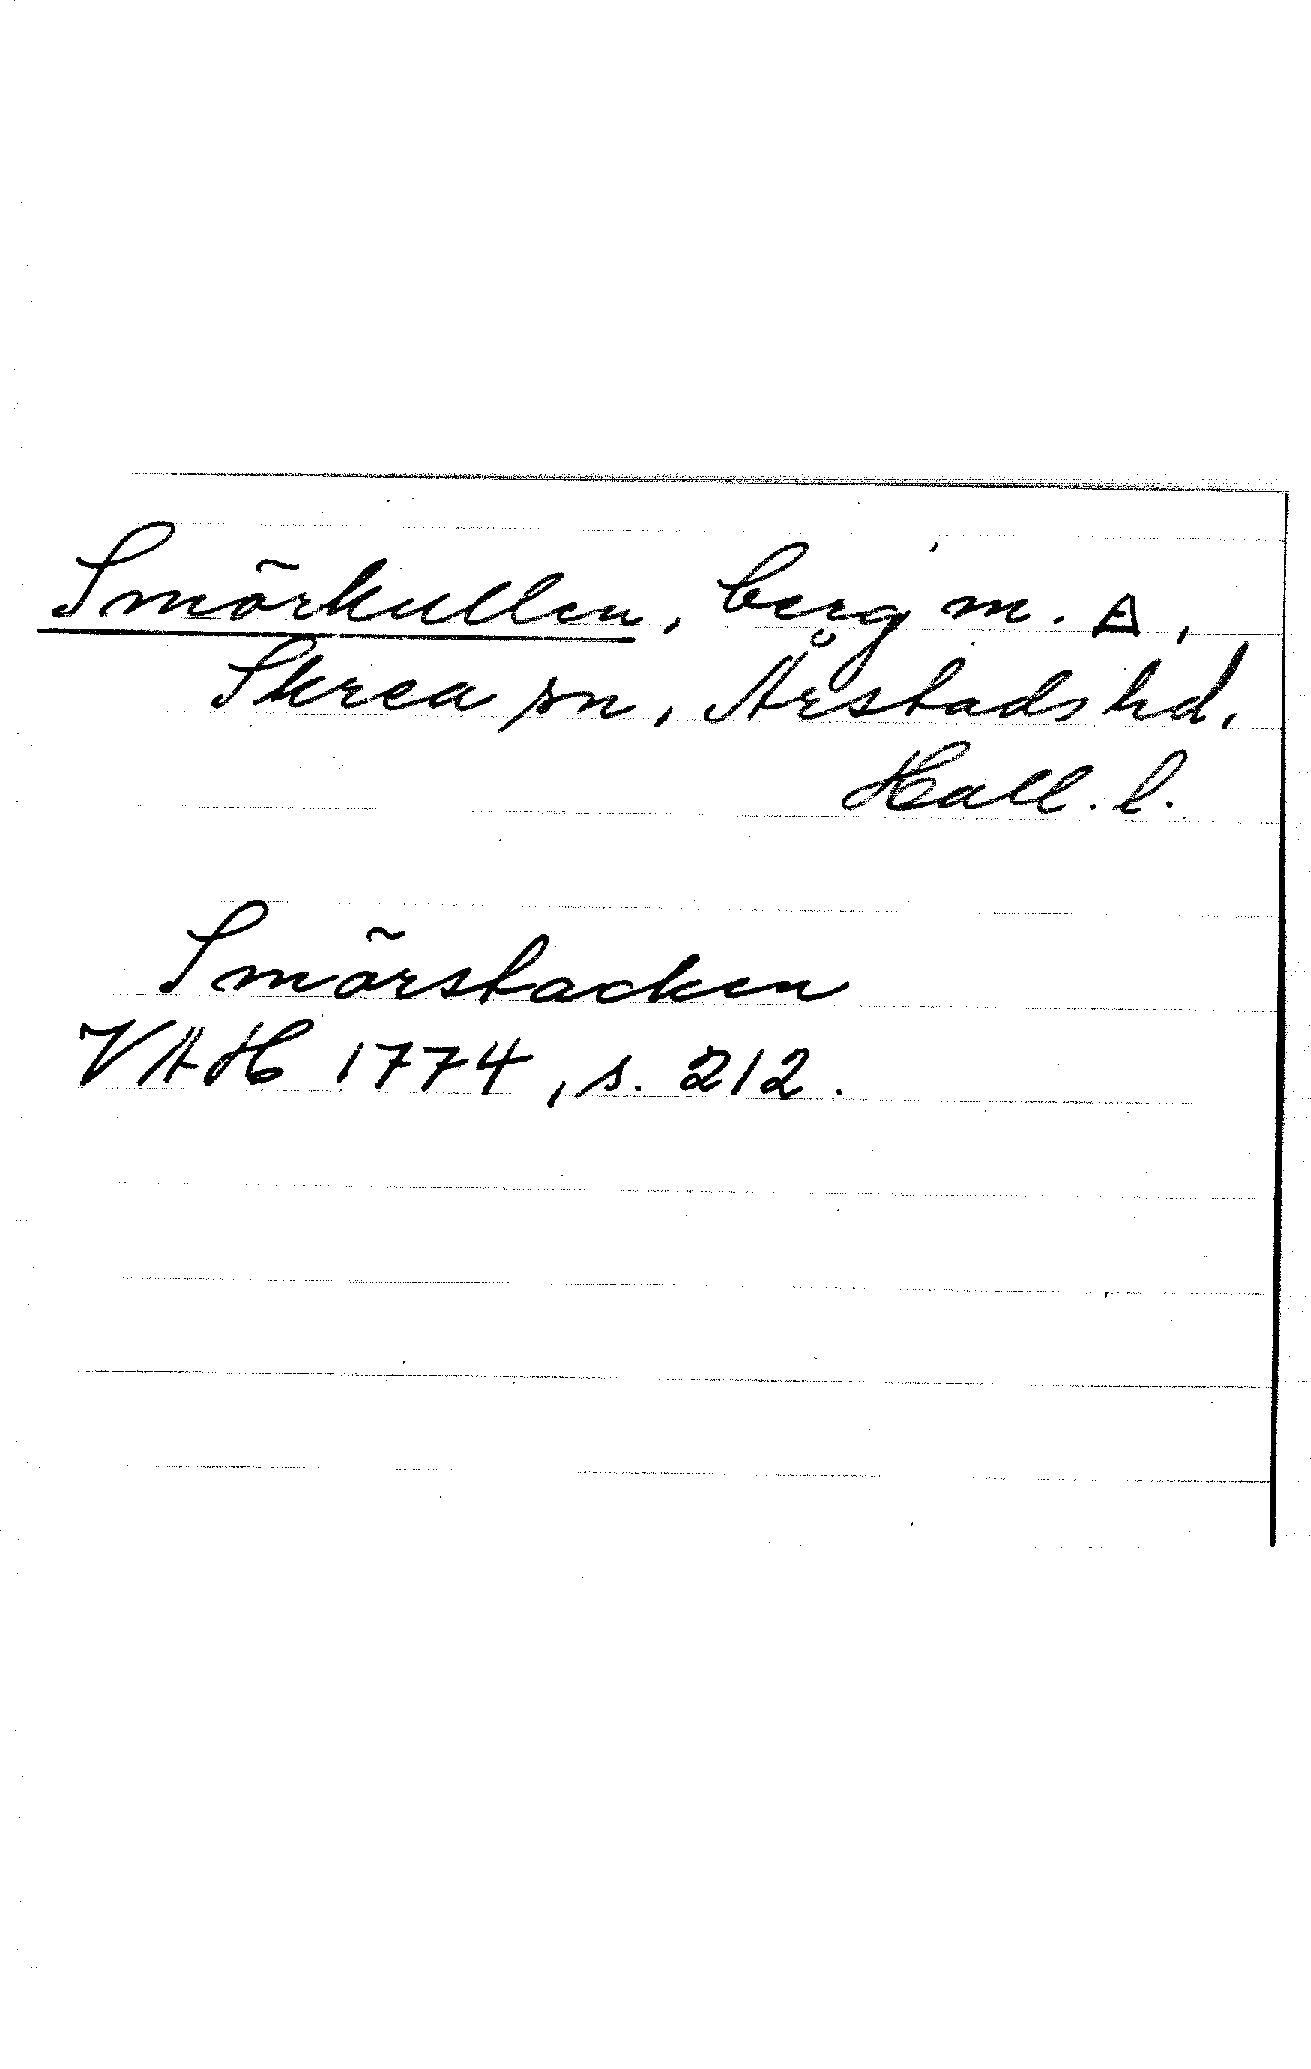 Smörkullen, berg m. A,
Skrea sn, Årstads hd,
Hall. l.
Smörstacken
VAH 1774, s. 212.